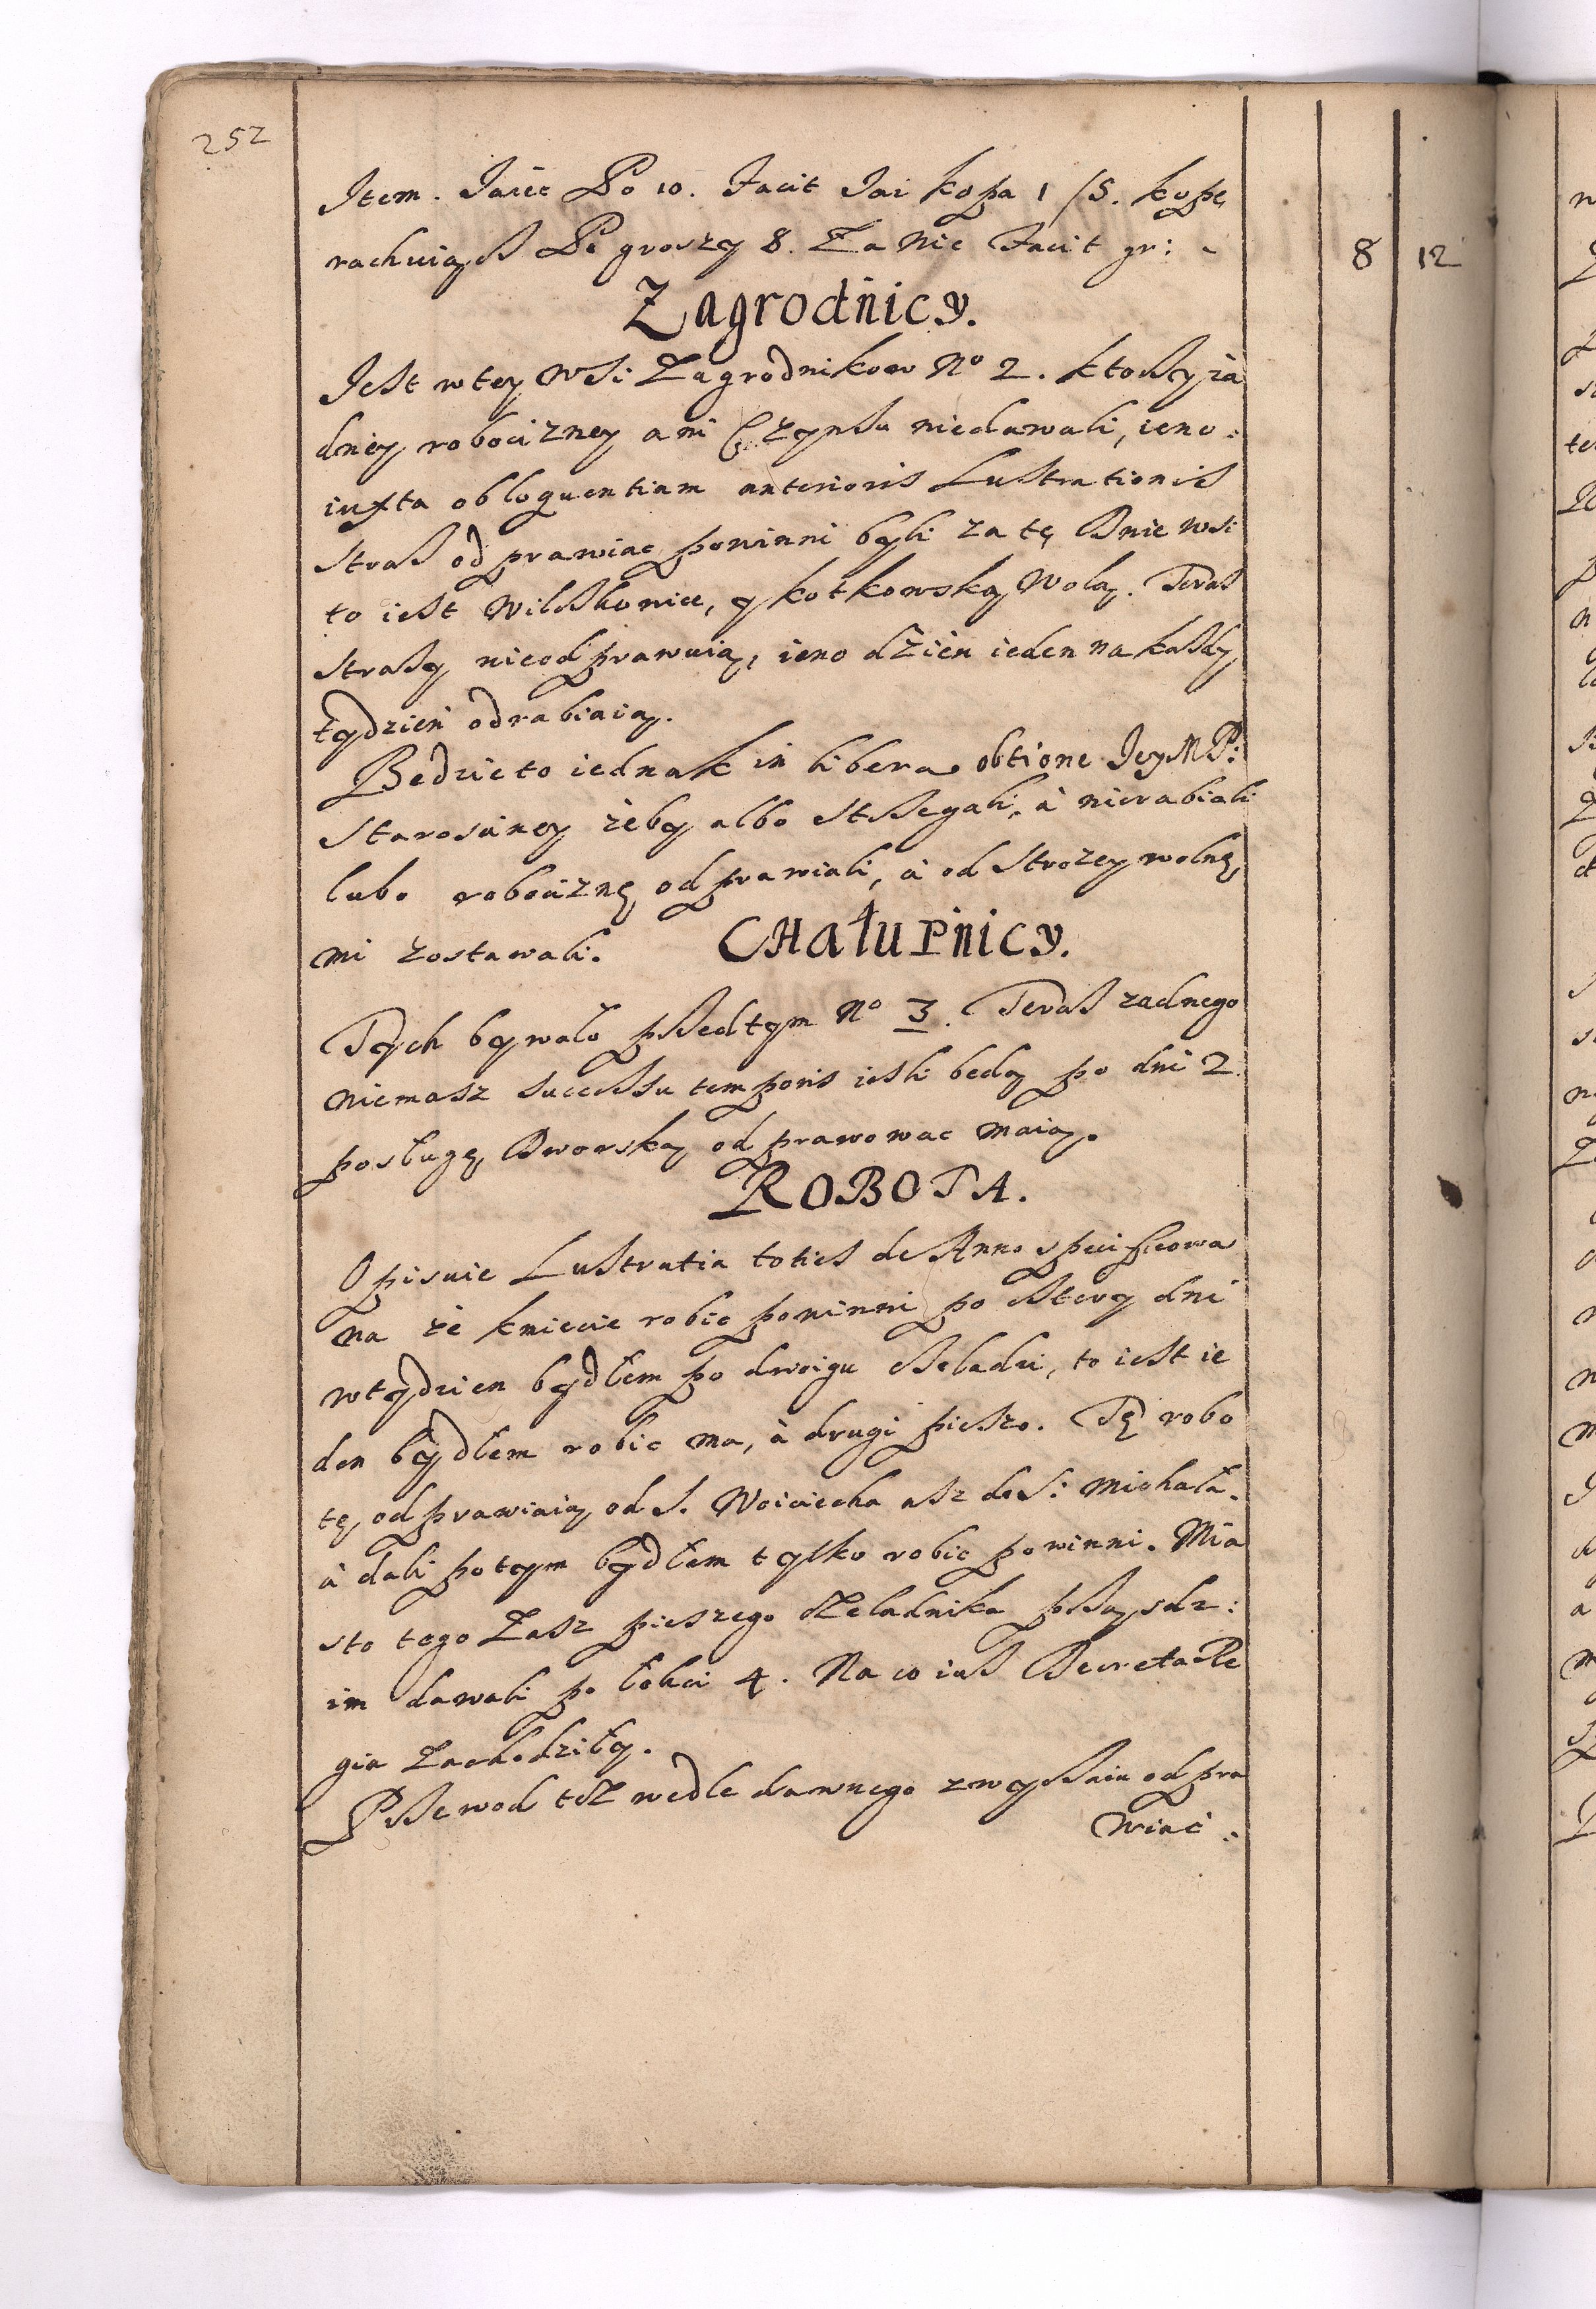 252
Item. Jaiec Po 10. Facit Jai kopa 1/5. kopę
rachuiąß Po groszy 8. Za Nie Facit gr: 8 12
Zagrodnicy.
Jest w tey Wsi Zagrodnikow No 2. ktoßy żà
dney robocizney ani Czynßu niedawali, ieno:
iuxta obloquentiam anterioris Lustrationis
straß odprawiac powinni byli za tę Dnie wsi
to iest Wilßkowice, y kotkowską Wolą. Teraß
straßy nieodprawuią, ieno dzień ieden na kaßdy
tydzień odrabiaią.
Bedzie to iednak in libera obtione Jey M P:
Starosciney żeby albo stßegali, à nierabiali
lubo robociznę odprawiali, à od strozey wolnę
mi zostawali.
CHałupnicy.
Tych bywało pßedtym No 3. Teraß zadnego
niemasz successu temporis iesli bedą po dni 2.
posługę Dworską odprawowac maią.
ROBOTA.
Opisuie Lustratia toties de Anno specificowa
na że kmiecie robic powinni po ßtery dni
w tydzien bydłem po dwoigu ßeladzi, to iest ie
den bydłem robic ma, à drugi pieszo. Tę robo
tę odprawiaią od S. Woiciecha asz do S: Michała.
à dali potym bydłem tylko robic powinni. Mia
sto tego Zasz pieszego czeladnika pßąsdz:
im dawali po łokci 4. Na co iuß Decreta Re
gia Zachodziły.
Pßewod teß wedle dawnego zwyßaiu odpra
wiać: